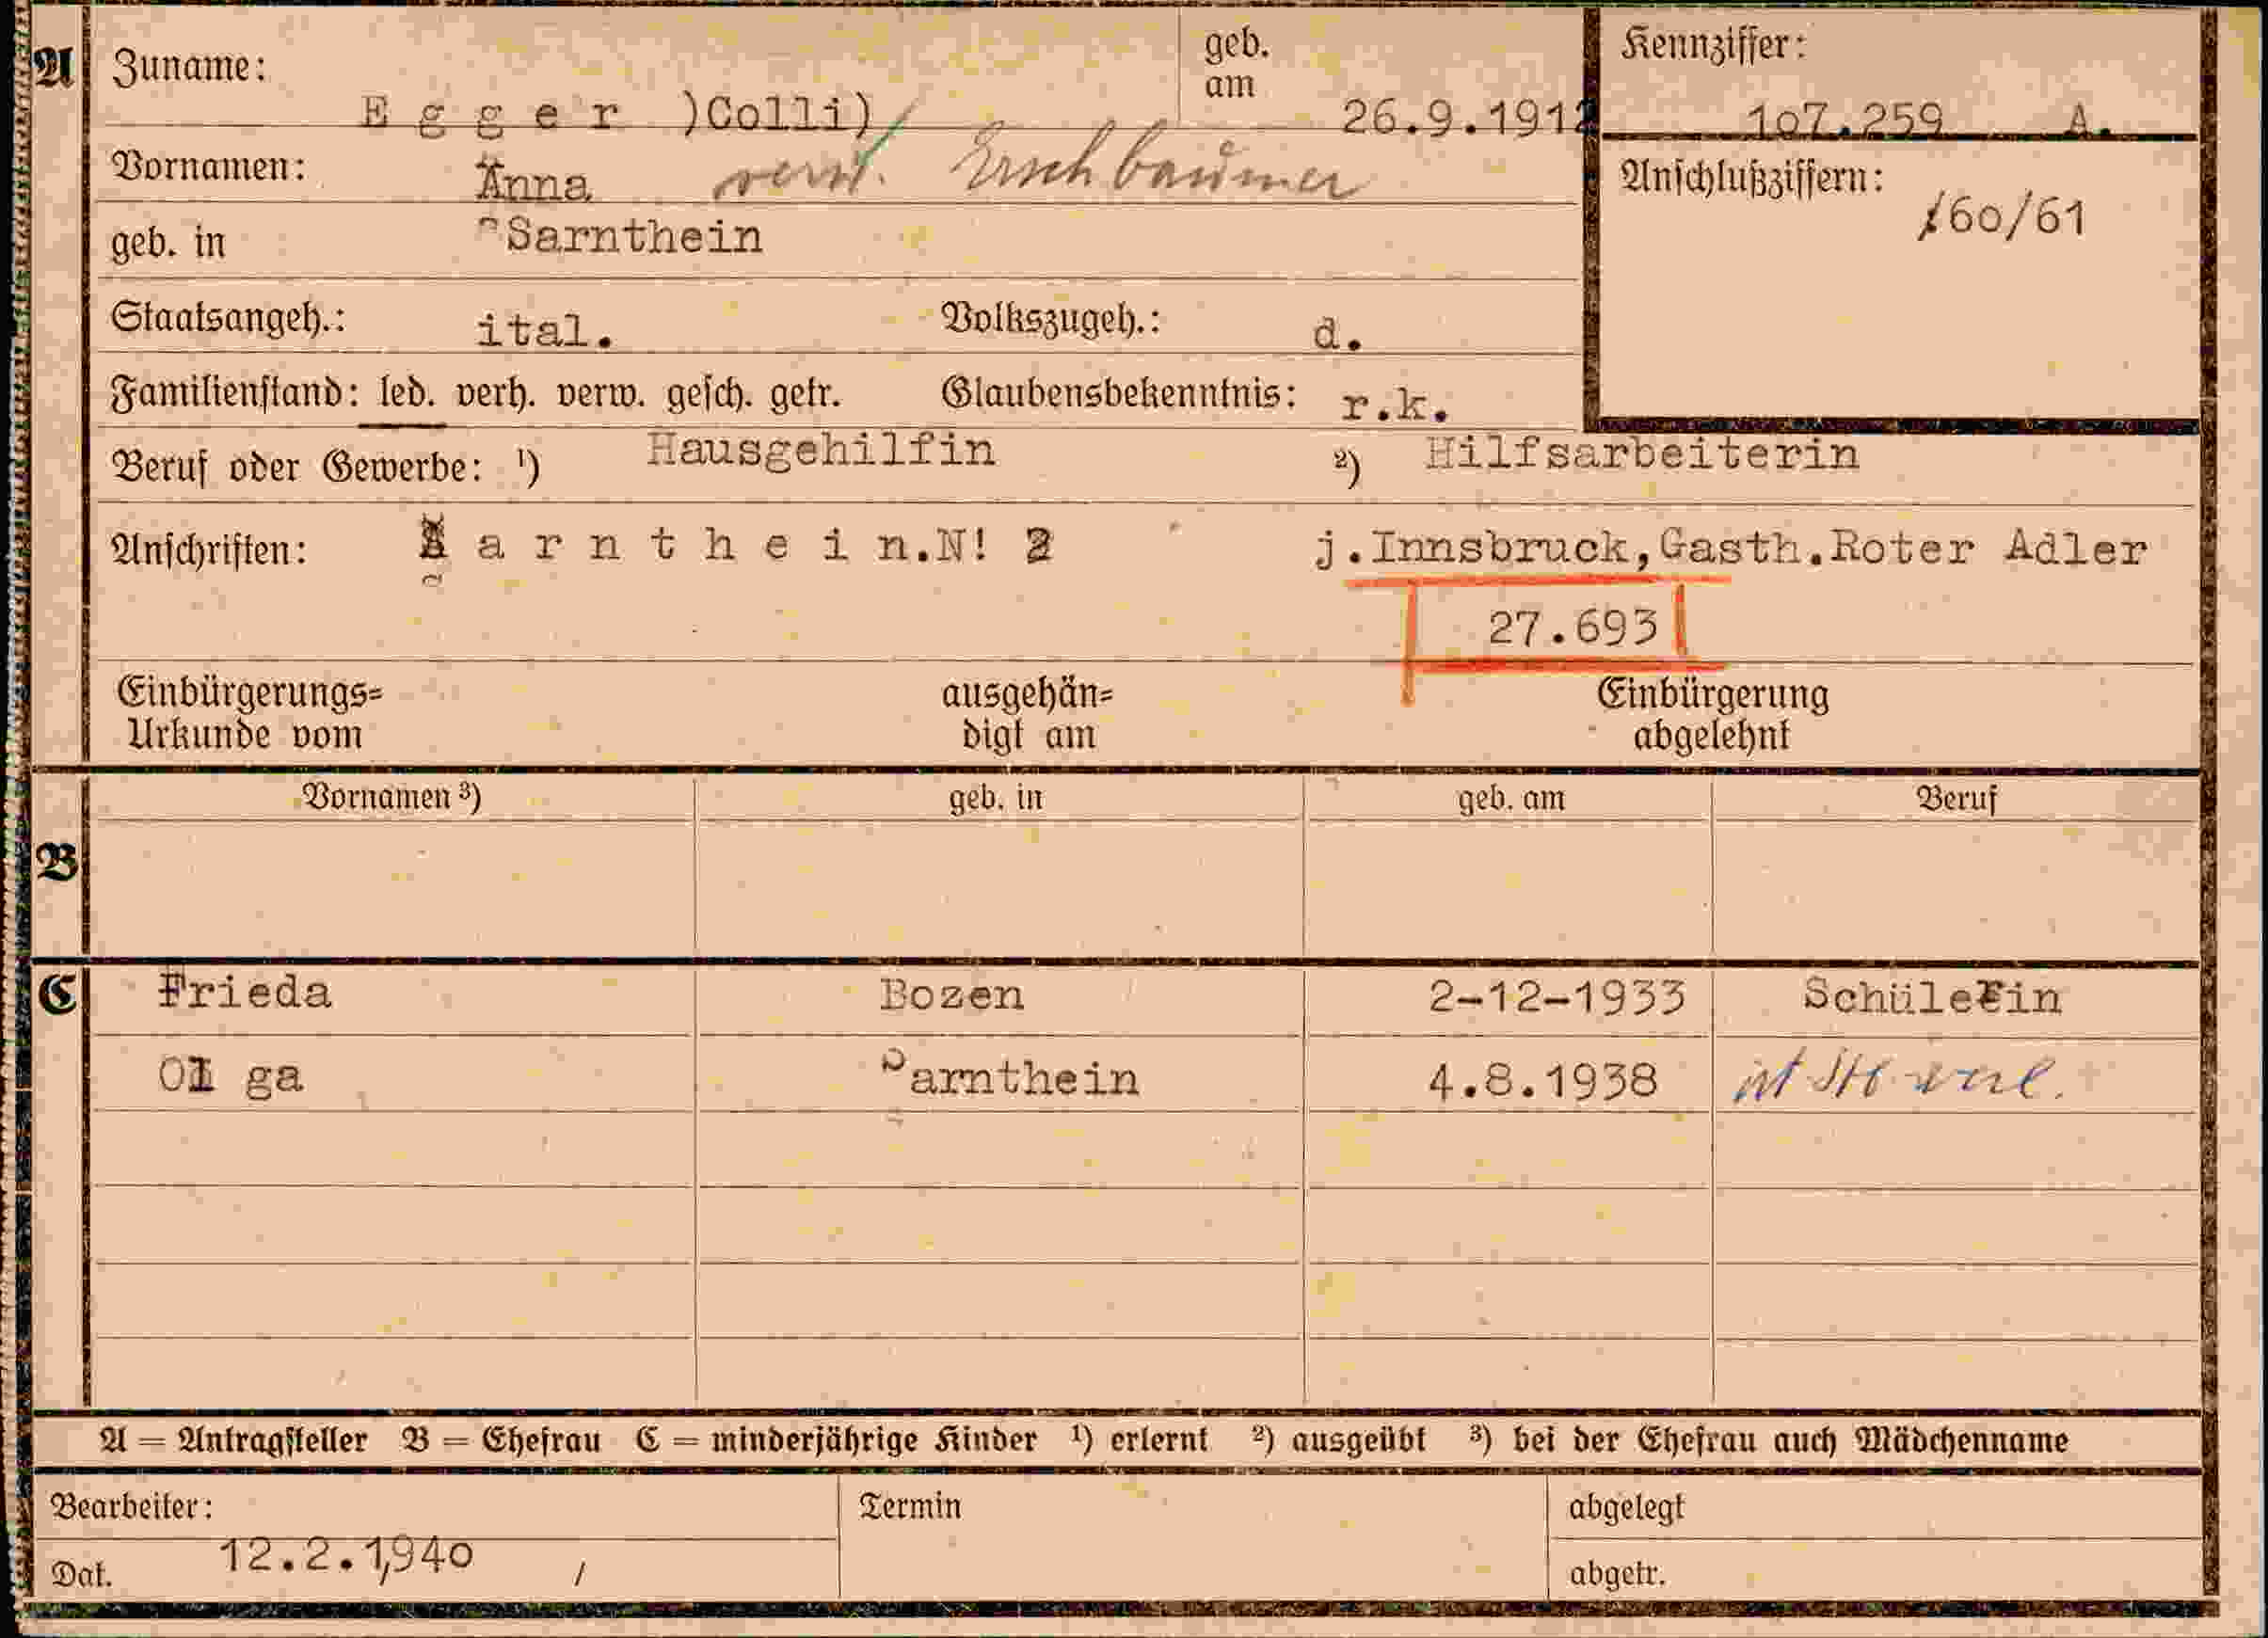 A Zuname: E g g e r )Colli)
geb. am 26.9.1912
Kennziffer: 107.259 A.
Vornamen: Anna Erschbaumer
Anschlußziffern: 160/61
geb. in Sarnthein
Staatsangeh.: ital. Volkszugeh.: d.
Familienstand: led. verh. verw. gesch. getr. Glaubensbekenntnis: r.k.
Beruf oder Gewerbe: ¹) Hausgehilfin ²) Hilfsarbeiterin
Anschriften: S a r n t h e i n.N! 2 j.Innsbruck,Gasth.Roter Adler
27.693
Einbürgerungs= Urkunde vom
ausgehän= digt am
Einbürgerung abgelehnt
B Vornamen ³) geb. in geb. am Beruf
C Frieda Bozen 2-12-1933 Schülerin
Ol ga Sarnthein 4.8.1938 ist
A = Antragsteller B = Ehefrau C = minderjährige Kinder ¹) erlernt ²) ausgeübt ³) bei der Ehefrau auch Mädchenname
Bearbeiter: Termin abgelegt
Dat. 12.2.1940 / abgetr.